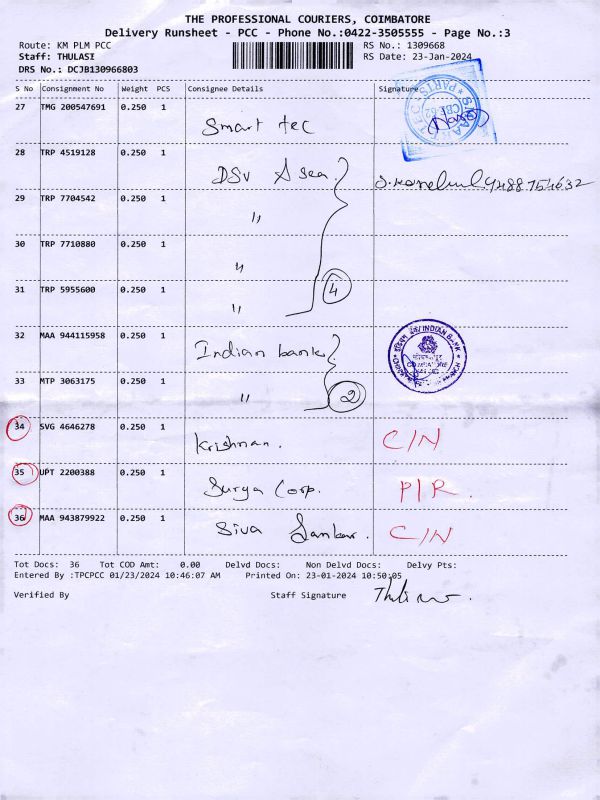 THE PROFESSIONAL COURIERS, COIMBATORE
Delivery Runsheet - PCC - Phone No.:0422-3505555 - Page No.:3
Route: KM PLM PCC RS No.: 1309668
Staff: THULASI RS Date: 23-Jan-2024
DRS No.: DCJB130966803
S No Consignment No Weight PCS Consignee Details Signature
27 TMG 200547691 0.250 1 Smart tec
28 TRP 4519128 0.250 1 DSV Asea 9488754632
29 TRP 7704542 0.250 1 〃
30 TRP 7710880 0.250 1 〃
31 TRP 5955600 0.250 1 〃 4
32 MAA 944115958 0.250 1 Indian bank INDIAN BANK
33 MTP 3063175 0.250 1 〃 2
34 SVG 4646278 0.250 1 Krishnan. C/N
35 UPT 2200388 0.250 1 Surya Corp. P/R.
36 MAA 943879922 0.250 1 Siva Sankar. C/N
Tot Docs: 36 Tot COD Amt: 0.00 Delvd Docs: Non Delvd Docs: Delvy Pts:
Entered By :TPCPCC 01/23/2024 10:46:07 AM Printed On: 23-01-2024 10:50:05
Verified By Staff Signature